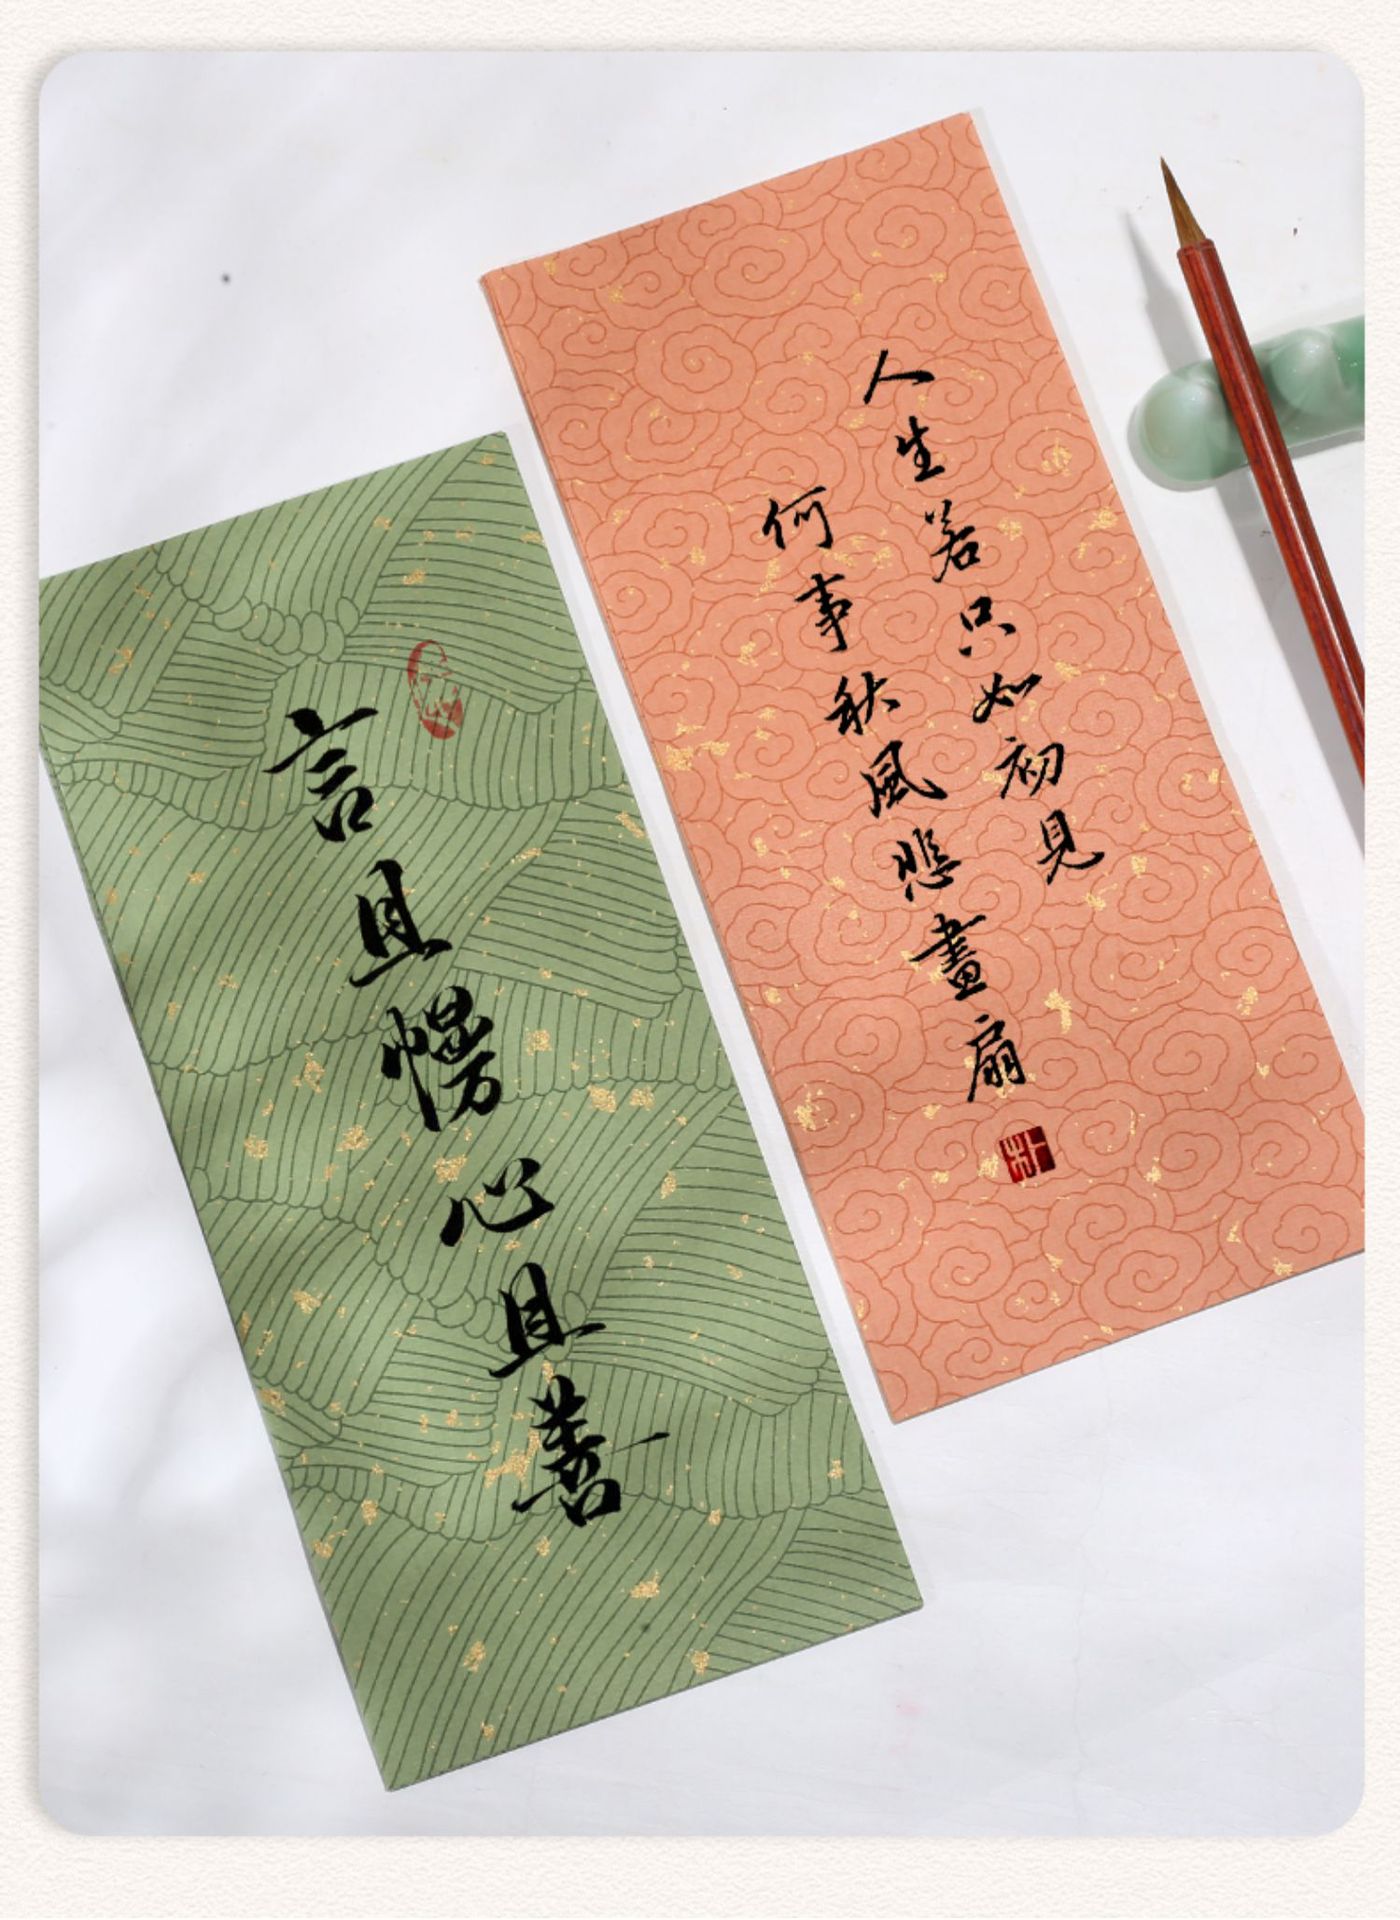 人生若只如初見
何事秋風悲畫扇
言且慢心且善